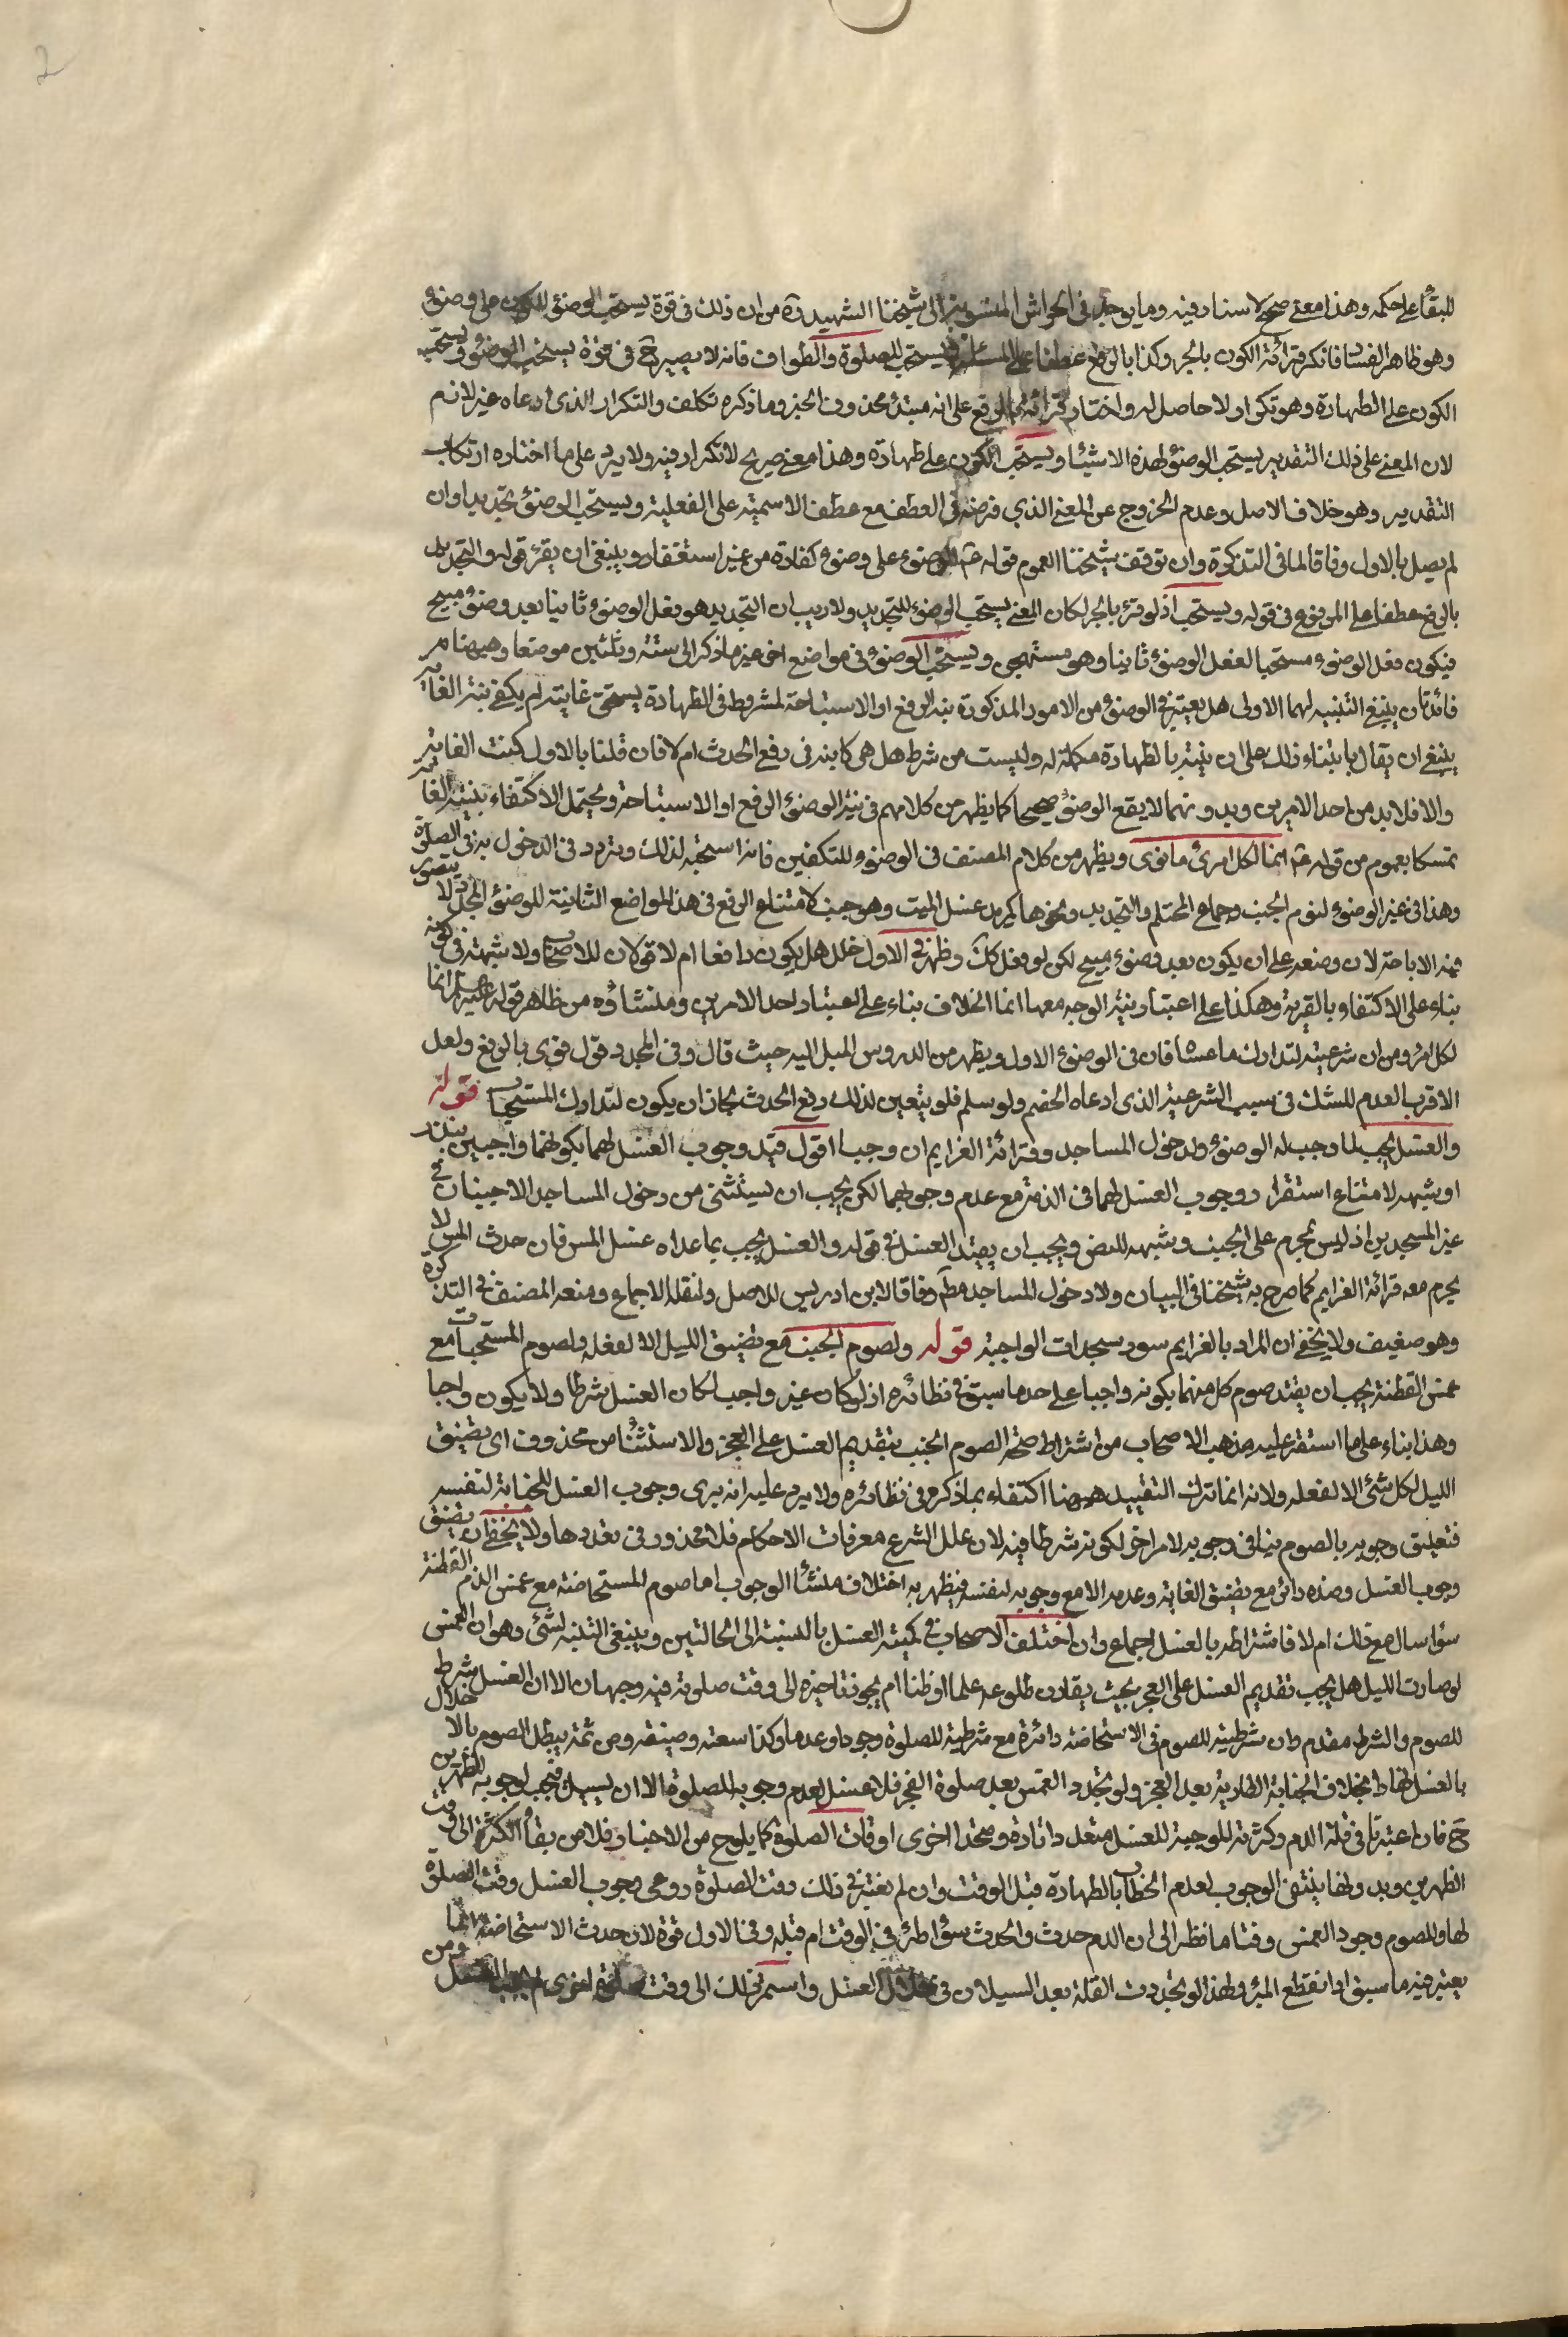 2
للبقاء على حكمه وهذا معنى صحيح لا سناد فيه وما يوجد في الحواشى المنسوبة الى شيخنا الشهيد ره من ان ذلك فى قوة يستحب الوضوء للكون على وضوء
وهو ظاهر الفساد فانكر قرائة الكون بالجر وكذا بالرفع عطفا على يستحب للصلوة والطواف فانه لا يصير ح فى قوة يستحب الوضوء
الكون على الطهارة وهو تكرار لا حاصل له واختار قرائته بالرفع على انه مبتدء محذوف الخبر وما ذكره تكلف والتكرار الذى ادعاه غير لازم
لان المعنى على ذلك التقدير يستحب الوضوء لهذه الاشياء ويستحب الكون على طهارة وهذا معنى صريح لا تكرار فيه ولا يرد على ما اختاره ارتكاب
التقدير وهو خلاف الاصل وعدم الخروج عن المعنى الذي فرضه فى العطف مع عطف الاسمية على الفعلية ويستحب الوضوء تجديدا وان
لم يصل بالاول وفاقا لما فى التذكرة وان توقف شيخنا لعموم قوله الوضوء على وضوء كفارة من غير استغفار وينبغى ان يقرء قوله والتجديد
بالرفع عطفا على المرفوع فى قوله ويستحب اذ لو قرء بالجر لكان المعنى يستحب الوضوء للتجديد ولا ريب ان التجديد هو فعل الوضوء ثانيا بعد وضوء مبيح
فيكون فعل الوضوء مستحبا لفعل الوضوء ثانيا وهو مستهجن ويستحب الوضوء فى مواضع اخر غير ما ذكر الى ستة وثلثين موضعا وههنا
فائدتان ينبغى التنبيه لهما الاولى هل يعتبر فى الوضوء من الامور المذكورة نية الرفع او الاستباحة لمشروط فى الطهارة يسمى غايته ام يكفى نية الغاية
ينبغى ان يقال بابتناء ذلك على ان نيته بالطهارة مكملة له وليست من شرطه هل هى كافية فى رفع الحدث ام لا فان قلنا بالاول كفت الغاية
والا فلا بد من احد الامرين وبدونهما لا يقع الوضوء صحيحا كما يظهر من كلامهم فى نية الوضوء الرفع او الاستباحة ويحتمل الاكتفاء بنية الغاية
تمسكا بعموم من قوله انما لكل امرئ ما نوى ويظهر من كلام المصنف فى الوضوء للتكفين فانه استحبه لذلك وتردد فى الدخول به فى الصلوة
وهذا فى غير الوضوء لنوم الجنب وجماع المحتلم والتجديد ونحوها كمريد غسل الميت وهو جنب لامتناع الرفع فى هذه المواضع الثانية للوضوء المجدد لا يتصور
فيه الاباحة لان وضعه على ان يكون بعد وضوء مبيح لكن لو فعل كك وظهر فى الاول خلل هل يكون رافعا ام لا قولان للاصحاب ولا شبهة فى كونه
بناء على الاكتفاء بالقربة وهكذا على اعتبار نية الوجه معها انما الخلاف بناء على اعتبار احد الامرين ومنشاؤه من ظاهر قوله عليه السلم انما
لكل امرء ومن ان شرعيته لتدارك ما عساه فات فى الوضوء الاول ويظهر من الدروس الميل اليه حيث قال وفى المجدد قول قوى بالرفع ولعل
الاقرب العدم للشك فى سبب الشرعية الذى ادعاه الخصم ولو سلم فلو يتعين لذلك رفع الحدث لجاز ان يكون لتدارك المستحبات قوله
والغسل يجب لما وجب له الوضوء ولدخول المساجد وقرائة العزايم ان وجبا اقول قيد وجوب الغسل لهما بكونهما واجبين بنذر
او شبهه لامتناع استقرار وجوب الغسل لهما فى الذمة مع عدم وجوبهما لكن يجب ان يستثنى من دخول المساجد الاجتياز فى
غير المسجدين اذ ليس بمحرم على الجنب وشبهه للنص ويجب ان يقيد الغسل فى قوله والغسل يجب بما عداه غسل المس فان حدث المس لا
يحرم معه قرائة العزايم كما صرح به شيخنا فى البيان ولا دخول المساجد مطلقا وفاقا لابن ادريس للاصل ولنقله الاجماع ومنعه المصنف فى التذكرة
وهو ضعيف ولا يخفى ان المراد بالعزايم سور سجدات الواجبة قوله ولصوم الجنب مع تضيق الليل الا لفعله ولصوم المستحاضة مع
غمس القطنة يجب ان يقيد صوم كل منهما بكونه واجبا على حد ما سبق فى نظائره اذ لو كان غير واجب لكان الغسل شرطا ولا يكون واجبا
وهذا بناء على ما استقر عليه مذهب الاصحاب من اشتراط صحة الصوم الجنب بتقديم الغسل على الفجر والاستثناء من محذوف اى تضيق
الليل لكل شئ الا لفعله ولانه انما ترك التقييد ههنا اكتفاء بما ذكره فى نظائره ولا يرد عليه انه يرى وجوب الغسل للجنابة لنفسه
فتعليق وجوبه بالصوم ينافى وجوبه لامر اخر لكونه شرطا فيه لان علل الشرع معرفات الاحكام فلا محذور فى تعددها ولا يخفى ان تضيق
وجوب الغسل وضده دائر مع تضيق الغاية وعدمه الا مع وجوبه لنفسه فيظهر به اختلاف منشأ الوجوب اما صوم المستحاضة مع غمس الدم القطنة
سواء سال مع ذلك ام لا فاشتراطه بالغسل اجماع وان اختلف الاصحاب فى كمية الغسل بالنسبة الى الحالتين وينبغى التنبه لشئ وهو ان الغمس
لو صادف الليل هل يجب تقديم الغسل على الفجر بحيث يقارن طلوعه علما او ظنا ام يجوز تاخيره الى وقت صلوته فيه وجهان الا ان الغسل شرط
للصوم والشرط مقدم وان شرطيته للصوم فى الاستحاضة دائرة مع شرطيته للصلوة وجودا وعدما وكذا سعته وضيقه ومن ثمة يبطل الصوم بالاخلال
بالغسل لها بخلاف الجنابة الطارية بعد الفجر ولو تجدد الغمس بعد صلوة الفجر فلا غسل لعدم وجوبه للصلوة الا ان يسيل فيجب لوجوبه للظهرين
ح فان اعتبرنا فى قلة الدم وكثرته الموجبة للغسل متعددا تارة ومتحدا اخرى اوقات الصلوة كما يلوح من الاخبار فلا من بقاء الكثرة الى وقت
الظهرين وبدونها ينتفى الوجوب لعدم الخطاب بالطهارة قبل الوقت وان لم نعتبر فى ذلك وقت الصلوة روعى وجوب الغسل وقت الصلوة
لها وللصوم وجود الغمس وقتا ما نظرا الى ان الدم حدث والحدث سواء طرء فى الوقت ام قبله وفى الاول قوة لان حدث الاستحاضة انما
يعتبر فيه ما سبق اذا انقطع البرء ولهذا لو تجددت القلة بعد السيلان فى خلال الغسل واستمر ذلك الى وقت صلوة اخرى لم يجب الغسل ومن